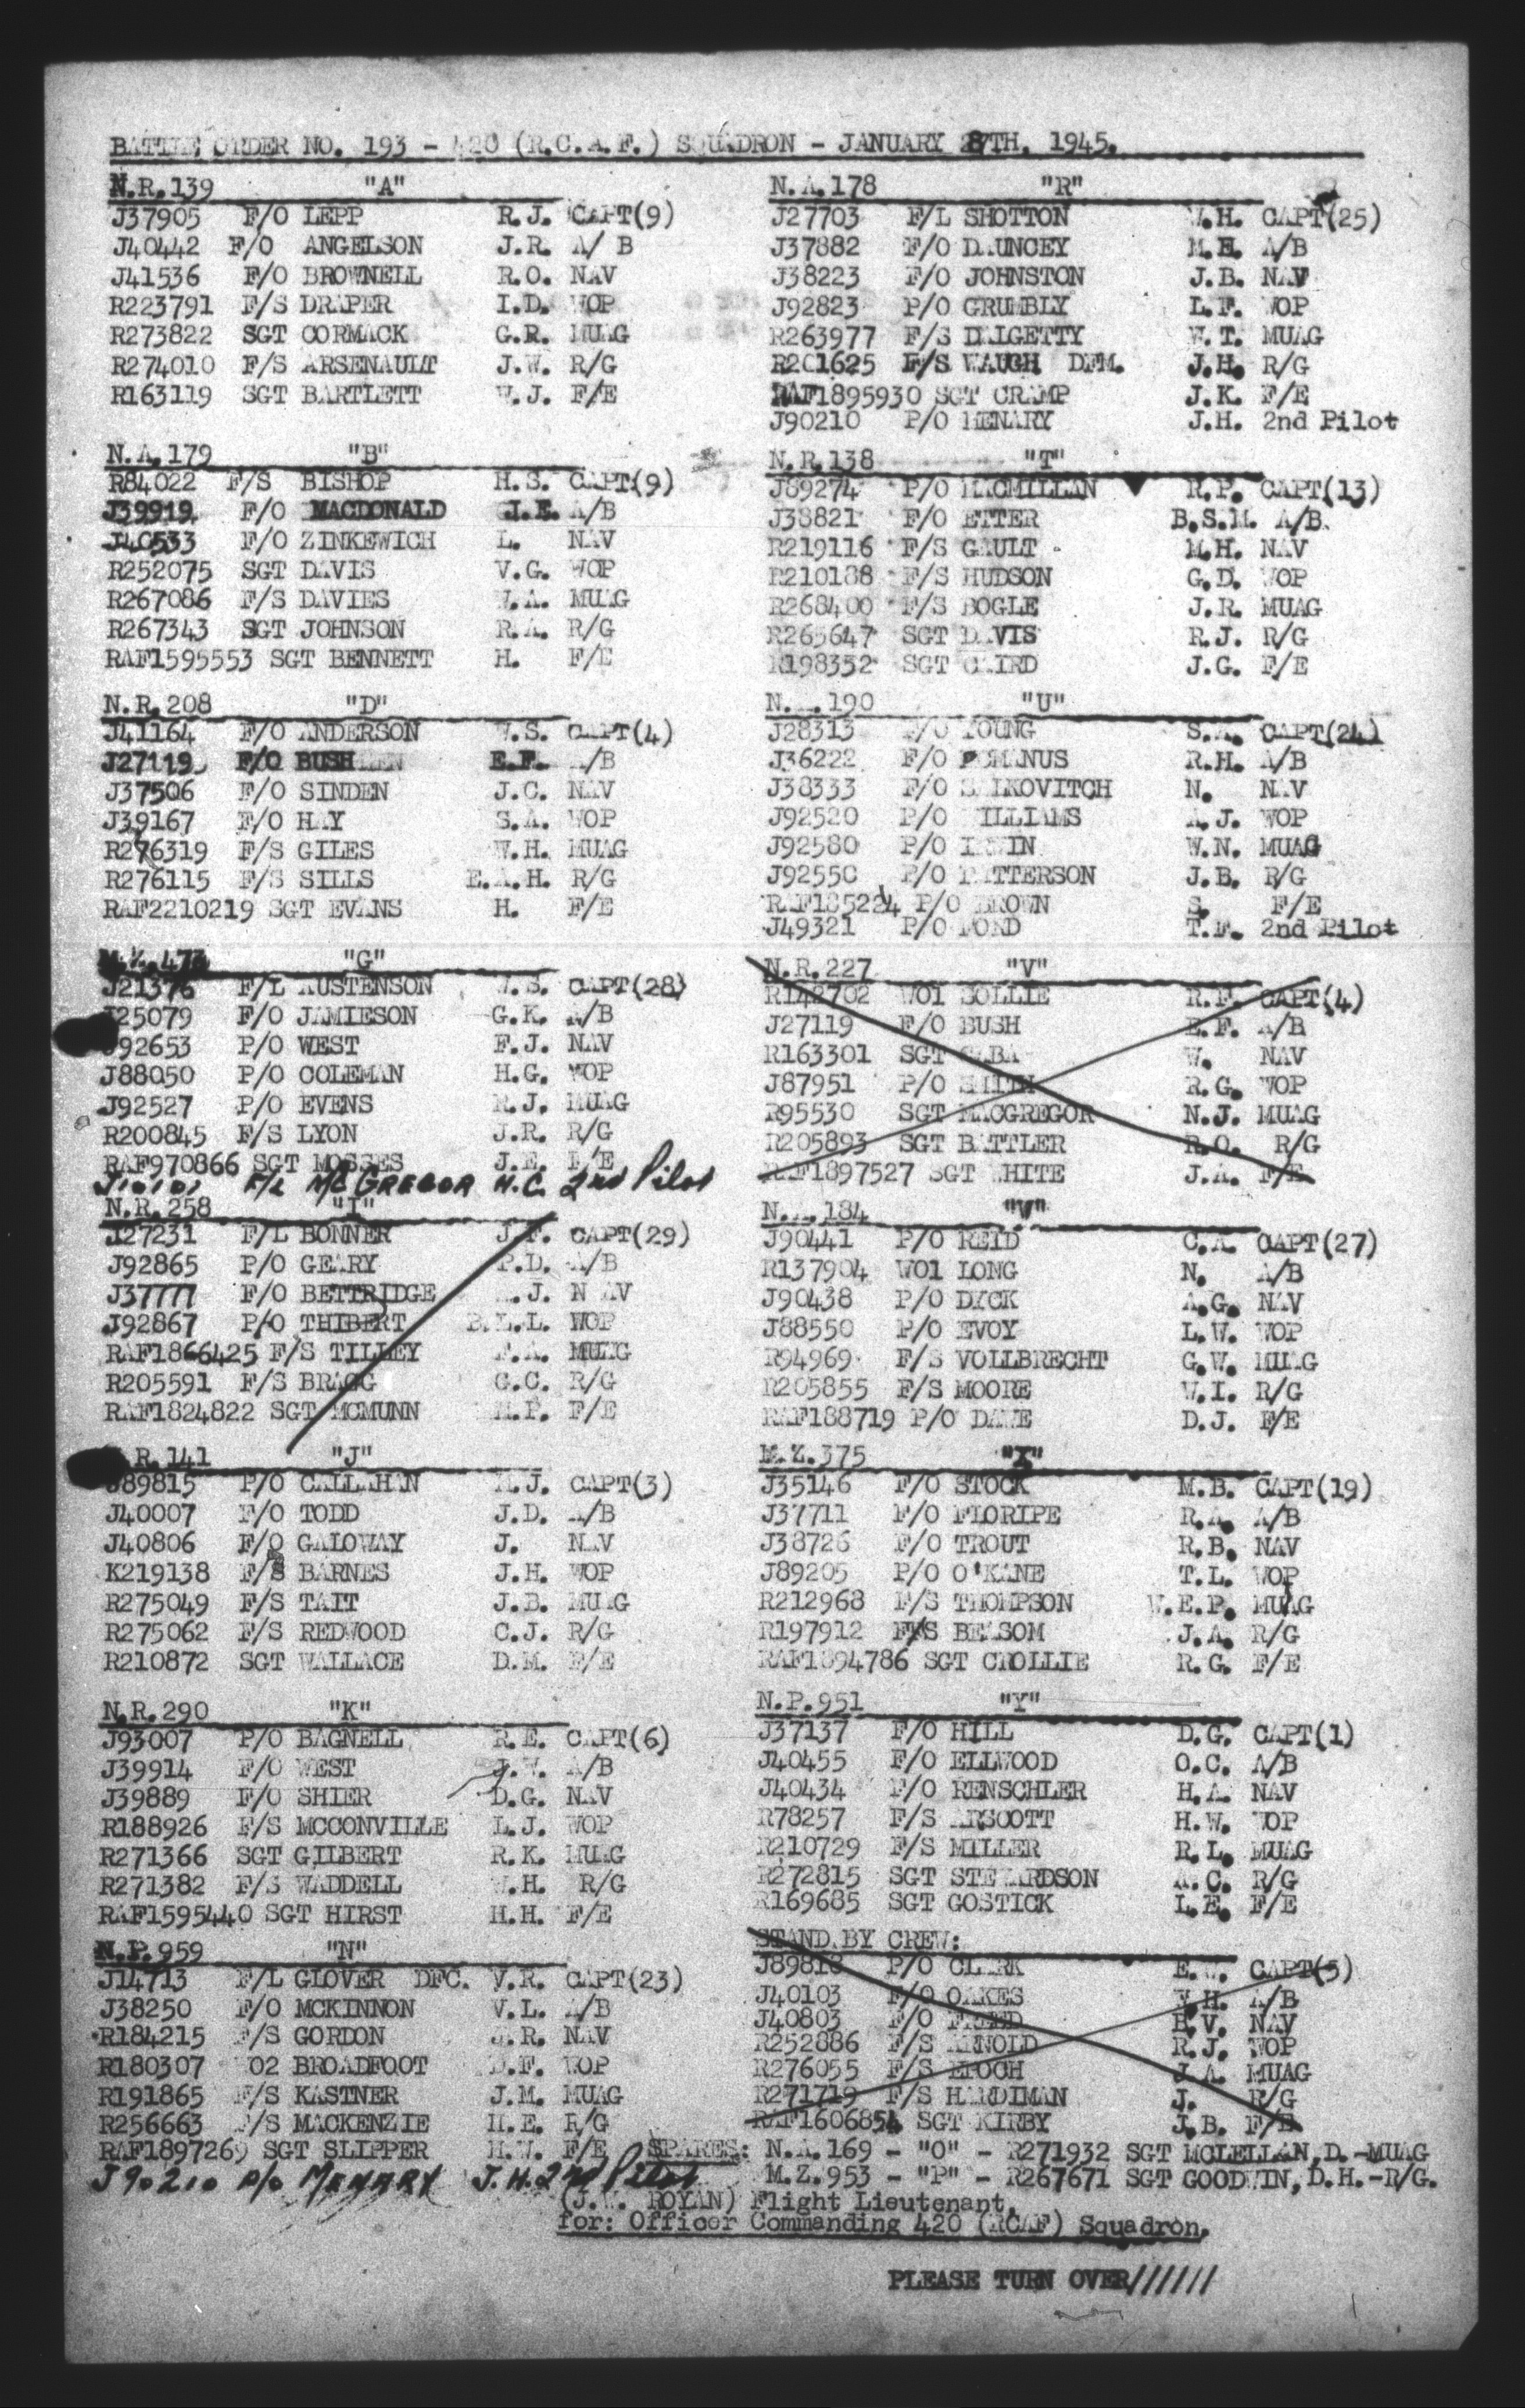 BATTLE ORDER NO. 193 - 420 (R.C.A.F.) SQUADRON - JANUARY 28TH, 1945.
N.R.139 "A"
J37905 F/O LEPP R.J. CAPT(9)
J40442 F/O ANGELSON J.R. A/ B
J41536 F/O BROWNELL R.O. NAV
R223791 F/S DRAPER I.D. WOP
R273822 SGT CORMACK G.R. MUAG
R274010 F/S ARSENAULT J.W. R/G
R163119 SGT BARTLETT W.J. F/E
N.A.179 "B"
R84022 F/S BISHOP H.S. CAPT(9)
J39919 F/O MACDONALD J.E. A/B
J40533 F/O ZINKEWICH L. NAV
R252075 SGT DAVIS V.G. WOP
R267086 F/S DAVIES W.A. MUAG
R267343 SGT JOHNSON R.A. R/G
RAF1595553 SGT BENNETT H. F/E
N.R.208 "D"
J41164 F/O ANDERSON W.S. CAPT(4)
J27119 F/O BUSH E.F. A/B
J37506 F/O SINDEN J.C. NAV
J39167 F/O HAY S.A. WOP
R276319 F/S GILES W.H. MUAG
R276115 F/S SILLS E.A.H. R/G
RAF2210219 SGT EVANS H. F/E
M.Z.473 "G"
J21376 F/L AUSTENSON W.S. CAPT(28)
J25079 F/O JAMIESON G.K. A/B
J92653 P/O WEST F.J. NAV
J88050 P/O COLEMAN H.G. WOP
J92527 P/O EVENS R.J. MUAG
R200845 F/S LYON J.R. R/G
RAF970866 SGT MOSSES J.E. F/E
F/L McGREGOR N.C. 2nd Pilot
N.R.258 "I"
J27231 F/L BONNER J.F. CAPT(29)
J92865 P/O GEARY P.D. A/B
J37777 F/O BETTRIDGE J. N AV
J92867 P/O THIBERT B.L.L. WOP
RAF1866425 F/S TILLEY F.A. MUAG
R205591 F/S BRAGG C.C. R/G
RAF1824822 SGT MCMUNN H.P. F/E
N.R.141 "J"
J89815 P/O CALLAHAN J. CAPT(3)
J40007 F/O TODD J.D. A/B
J40806 F/O GALOWAY J. NAV
K219138 F/S BARNES J.H. WOP
R275049 F/S TAIT J.B. MUAG
R275062 F/S REDWOOD C.J. R/G
R210872 SGT WALLACE D.M. F/E
N.R.290 "K"
J93007 P/O BAGNELL R.E. CAPT(6)
J39914 F/O WEST J.W. A/B
J39889 F/O SHIER D.G. NAV
R188926 F/S MCCONVILLE L.J. WOP
R271366 SGT GILBERT R.K. MUAG
R271382 F/S WADDELL W.H. R/G
RAF1595440 SGT HIRST H.H. F/E
N.P.959 "N"
J14713 F/L GLOVER DFC. V.R. CAPT(23)
J38250 F/O MCKINNON V.L. A/B
R184215 F/S GORDON J.R. NAV
R180307 WO2 BROADFOOT D.F. WOP
R191865 F/S KASTNER J.M. MUAG
R256663 F/S MACKENZIE H.E. R/G
RAF1897269 SGT SLIPPER H.W. F/E
J90210 P/O MENARY J.H. 2nd Pilot
N.A.178 "R"
J27703 F/L SHOTTON W.H. CAPT(25)
J37882 F/O DAUNCEY M.H. A/B
J38223 F/O JOHNSTON J.B. NAV
J92823 P/O GRUMBLY L.F. WOP
R263977 F/S DALGETTY W.T. MUAG
R201625 F/S WAUGH DFM. J.H. R/G
RAF1895930 SGT CRAMP J.K. F/E
J90210 P/O MENARY J.H. 2nd Pilot
N.R.138 "T"
J89274 P/O MACMILLAN R.P. CAPT(13)
J38821 F/O ETTER B.S.M. A/B
R219116 F/S GAULT M.H. NAV
R210188 F/S HUDSON G.D. WOP
R268400 F/S BOGLE J.R. MUAG
R265647 SGT DAVIS R.J. R/G
R198352 SGT CAIRD J.G. F/E
N.A.190 "U"
J28313 F/O YOUNG S.A. CAPT(24)
J36222 F/O ROMANUS R.H. A/B
J38333 F/O SALKOVITCH N. NAV
J92520 P/O WILLIAMS A.J. WOP
J92580 P/O IRWIN W.N. MUAG
J92550 P/O PATTERSON J.B. R/G
RAF185224 P/O BROWN S. F/E
J49321 P/O POND T.F. 2nd Pilot
N.R.227 "V"
R142702 WO1 SOLLIE R.F. CAPT(4)
J27119 F/O BUSH E.F. A/B
R163301 SGT W. NAV
J87951 P/O SMITH R.G. WOP
R95530 SGT MACGREGOR N.J. MUAG
R205893 SGT BATTLER R.O. R/G
RAF1897527 SGT WHITE J.A. F/E
N.A.184 "W"
J90441 P/O REID C.A. CAPT(27)
R137904 WO1 LONG N. A/B
J90438 P/O DYCK A.G. NAV
J88550 P/O EVOY L.W. WOP
R94969 F/S VOLLBRECHT G.W. MUAG
R205855 F/S MOORE W.I. R/G
RAF188719 P/O DAWE D.J. F/E
M.Z.375 "X"
J35146 F/O STOCK M.B. CAPT(19)
J37711 F/O FLORIPE R.A. A/B
J38726 F/O TROUT R.B. NAV
J89205 P/O O'KANE T.L. WOP
R212968 F/S THOMPSON W.E.P. MUAG
R197912 F/S BEASOM J.A. R/G
RAF1894786 SGT CROLLIE R.G. F/E
N.P.951 "Y"
J37137 F/O HILL D.G. CAPT(1)
J40455 F/O ELLWOOD O.C. A/B
J40434 F/O RENSCHLER H.A. NAV
R78257 F/S ARSCOTT H.W. WOP
R210729 F/S MILLER R.L. MUAG
R272815 SGT STEWARDSON A.C. R/G
R169685 SGT GOSTICK L.E. F/E
STAND.BY CREW:
J89818 P/O CLARK E.W. CAPT(5)
J40103 F/O OAKES W.H. A/B
J40803 F/O FREED B.V. NAV
R252886 F/S ARNOLD R.J. WOP
R276055 F/S EPOCH J.A. MUAG
R271719 F/S HARDIMAN J. R/G
RAF1606854 SGT KIRBY J.B. F/E
SPARES: N.A.169 - "O" - R271932 SGT MCLELLAN,D.-MUAG
M.Z.953 - "P" - R267671 SGT GOODWIN,D.H.-R/G.
(J.W. ROYAN) Flight Lieutenant,
for: Officer Commanding 420 (RCAF) Squadron.
PLEASE TURN OVER//////